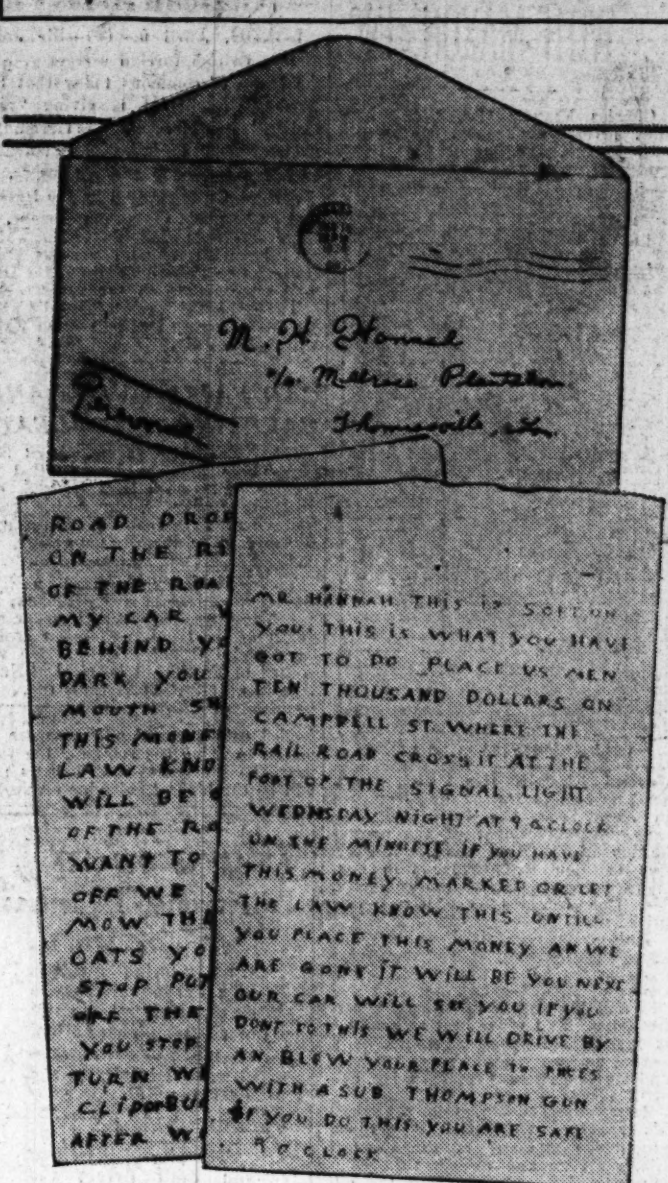 M. H. Hannah
c/o. Millrace Plantation
Thomasville, Ga.
Personal
ROAD DROP
ON THE RI
OF THE ROA
MY CAR W
BEHIND YO
PARK YOU
MOUTH SH
THIS MONE
LAW KNO
WILL BE
OF THE RO
WANT TO
OFF WE
MOW THE
OATS YO
STOP PUT
OFF THE
YOU STOP
TURN WE
CLIP OR BU
AFTER WE
MR HANNAH THIS IS SOFT ON
YOU THIS IS WHAT YOU HAVE
GOT TO DO PLACE US MEN
TEN THOUSAND DOLLARS ON
CAMPBELL ST WHERE THE
RAIL ROAD CROSS IT AT THE
FOOT OF THE SIGNAL LIGHT
WEDNSEAY NIGHT AT 9 OCLOCK
ON THE MINUETE IF YOU HAVE
THIS MONEY MARKED OR LET
THE LAW KNOW THIS UNTILL
YOU PLACE THIS MONEY AN WE
ARE GONE IT WILL BE YOU NEXT
OUR CAR WILL SEE YOU IF YOU
DONT TO THIS WE WILL DRIVE BY
AN BLEW YOUR PLACE TO PIECES
WITH A SUB THOMPSON GUN
IF YOU DO THIS YOU ARE SAFE
9 O CLOCK